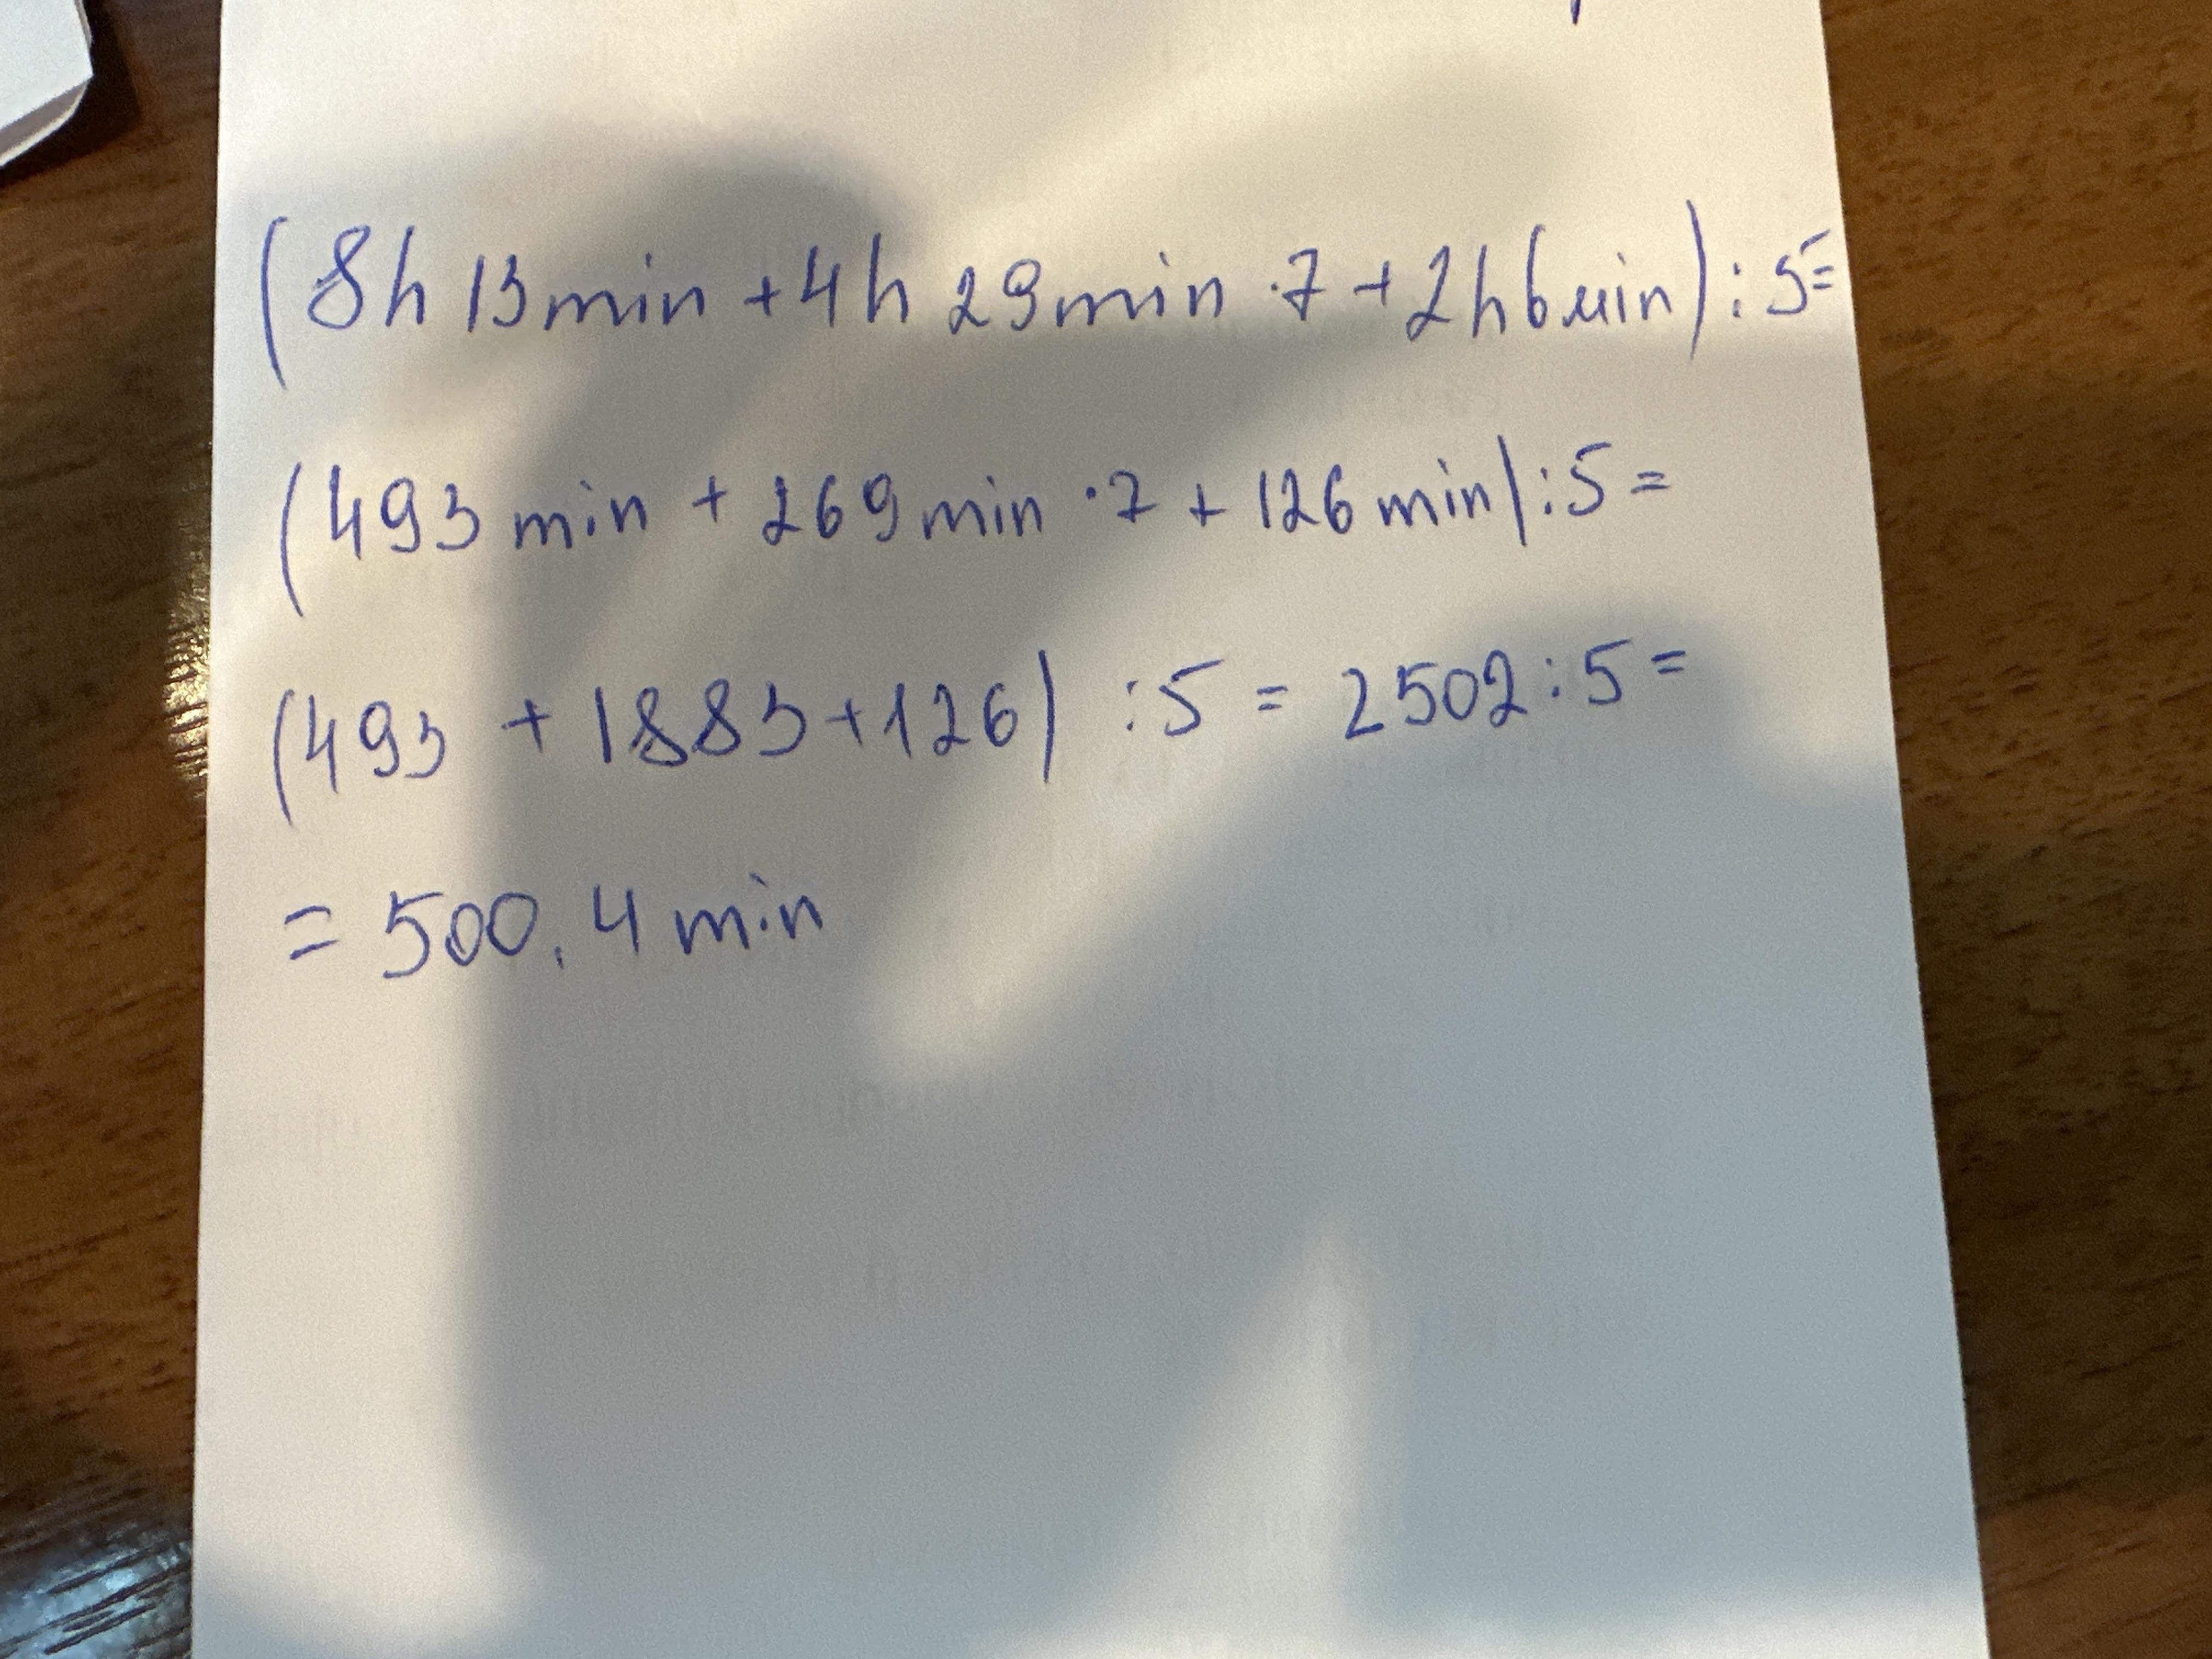 (8h 13min + 4h 29min · 7 + 2h 6min) : 5 =
(493 min + 269 min · 7 + 126 min) : 5 =
(493 + 1883 + 126) : 5 = 2502 : 5 =
= 500,4 min